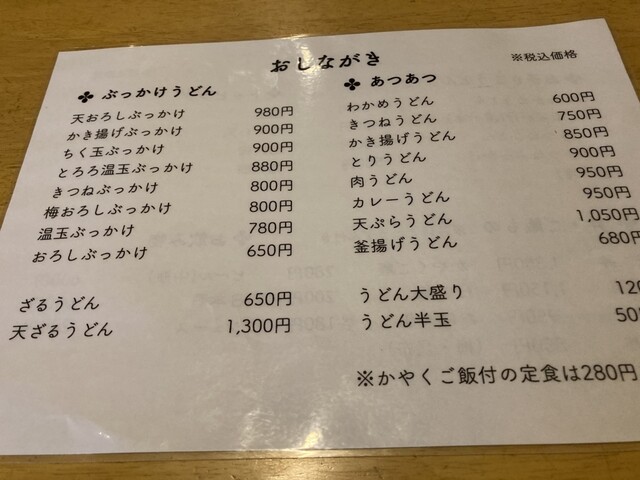 おしながき
※税込価格
ぶっかけうどん
天おろしぶっかけ 980円
かき揚げぶっかけ 900円
ちく玉ぶっかけ 900円
とろろ温玉ぶっかけ 880円
きつねぶっかけ 800円
梅おろしぶっかけ 800円
温玉ぶっかけ 780円
おろしぶっかけ 650円
ざるうどん 650円
天ざるうどん 1,300円
あつあつ
わかめうどん 600円
きつねうどん 750円
かき揚げうどん 850円
とりうどん 900円
肉うどん 950円
カレーうどん 950円
天ぷらうどん 1,050円
釜揚げうどん 680円
うどん大盛り 120
うどん半玉 50
※かやくご飯付の定食は280円